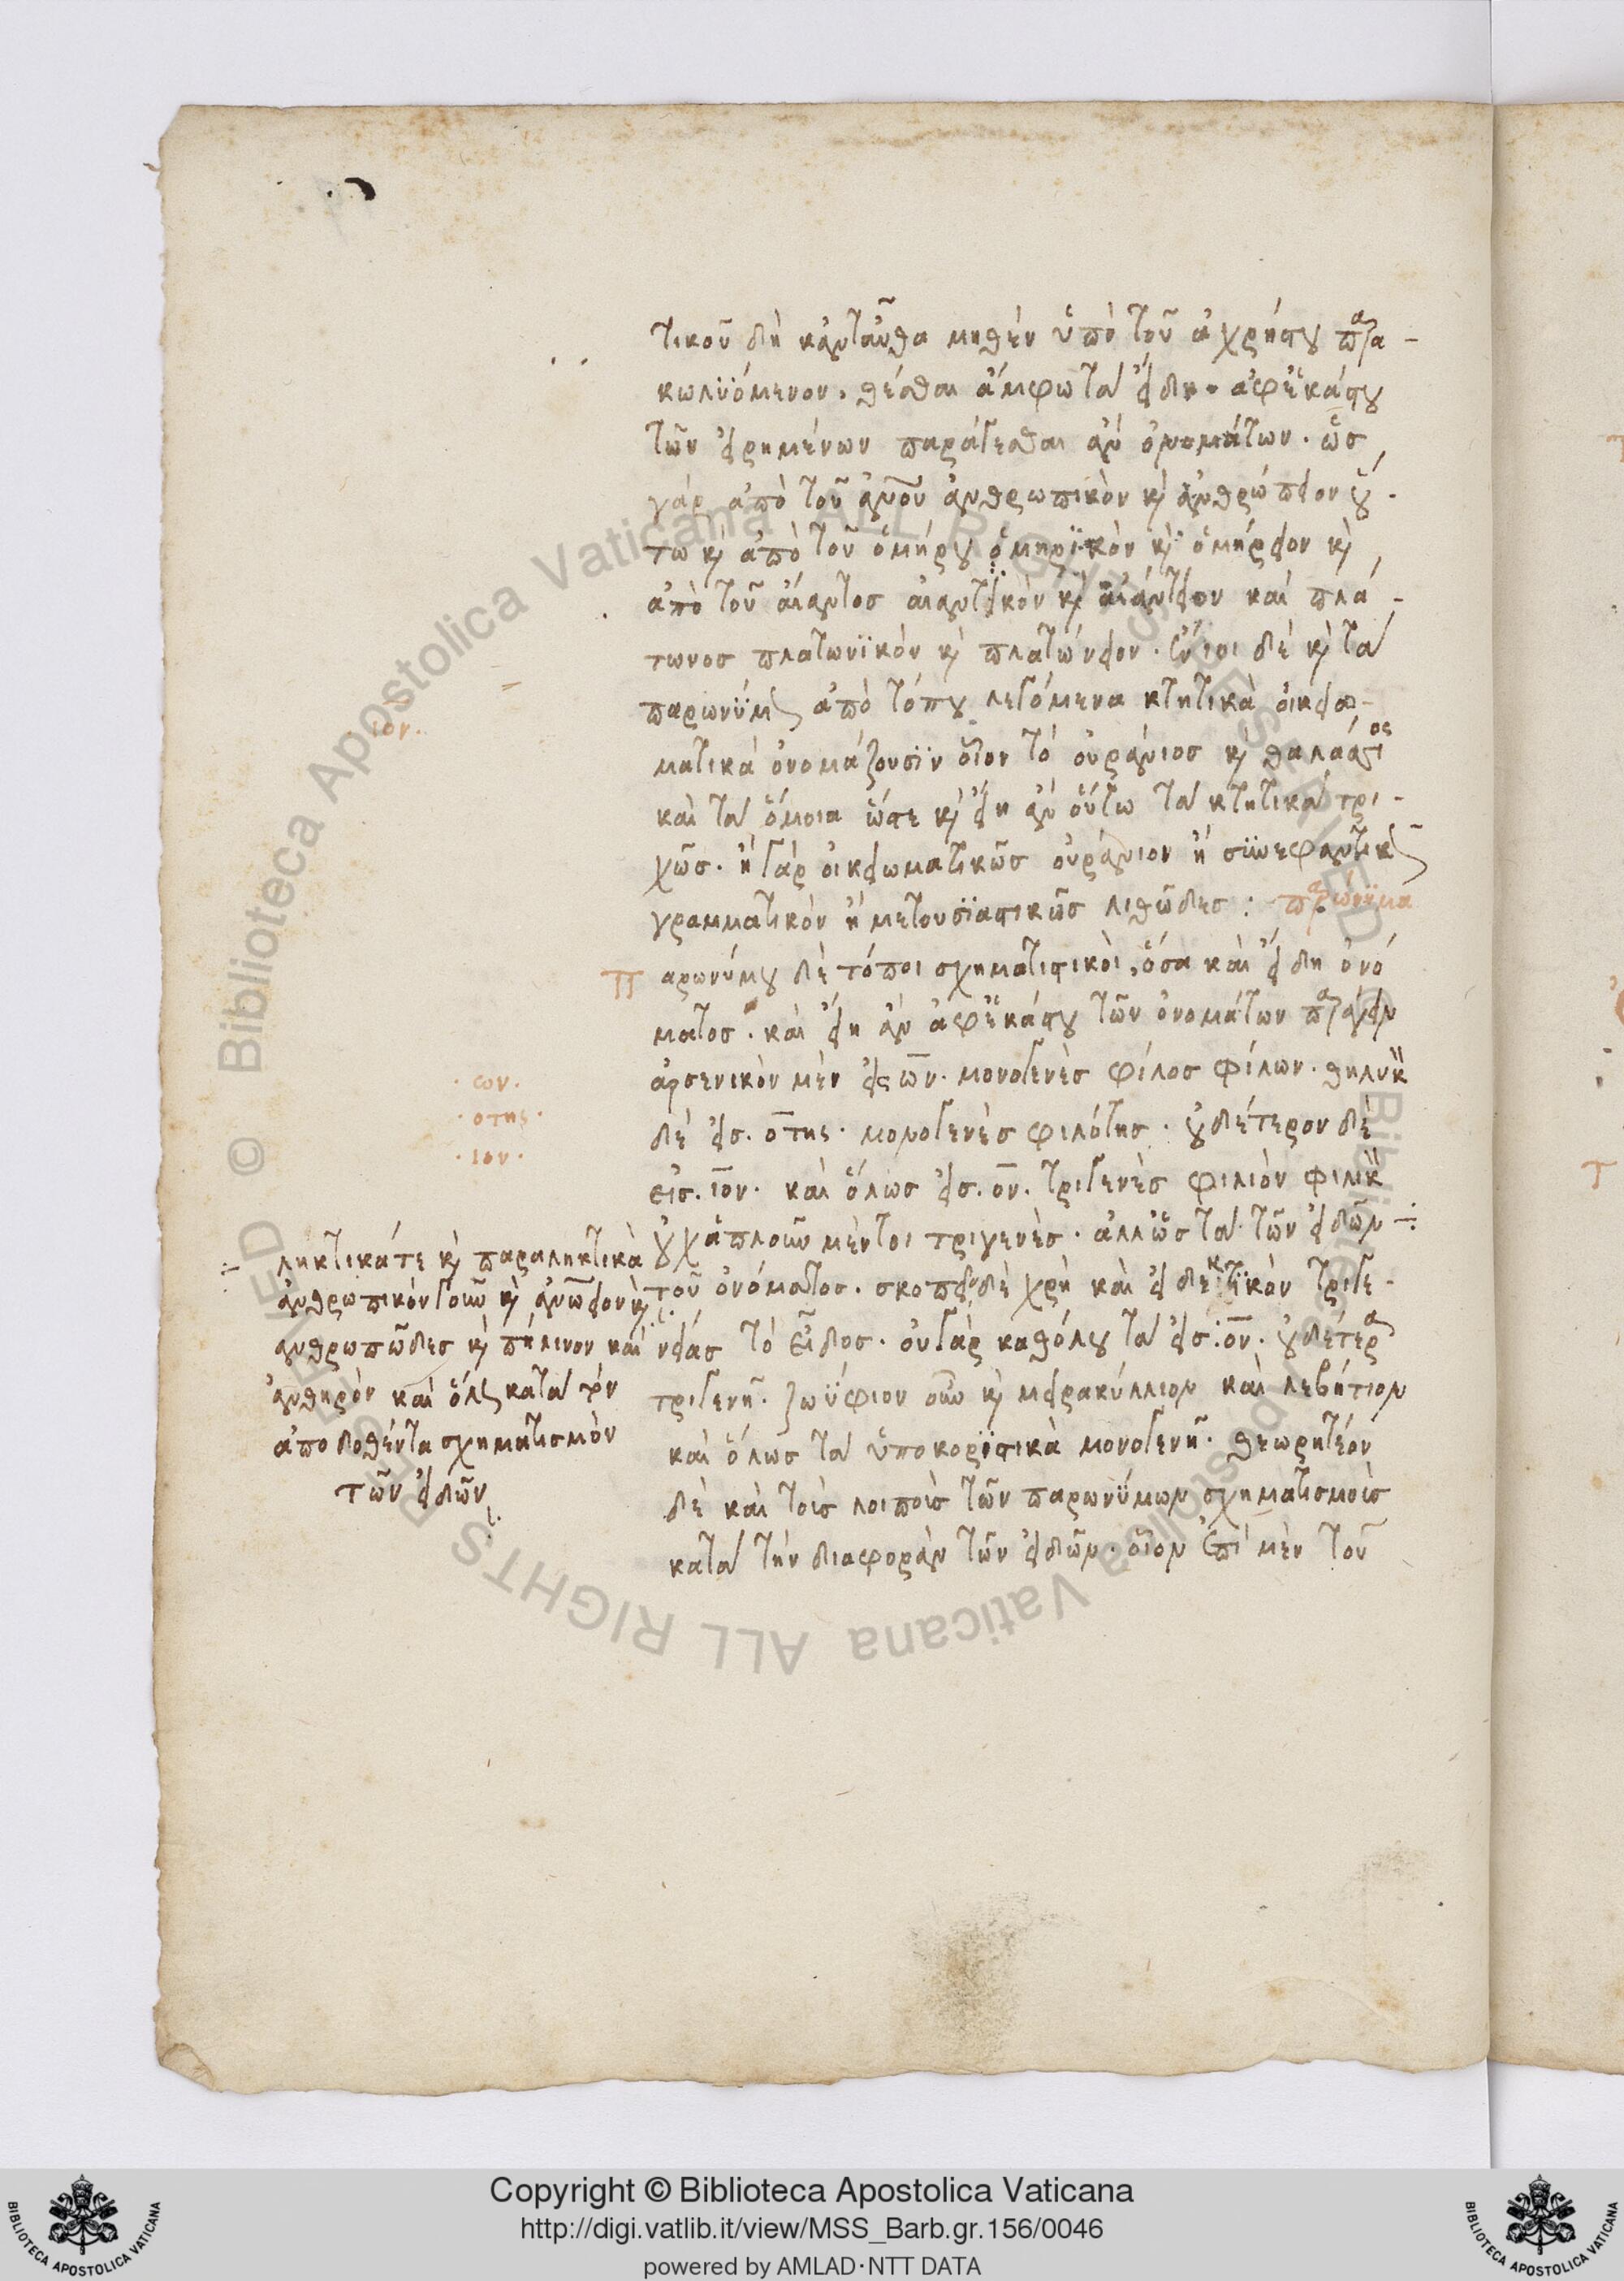 τικοῦ δὴ κἀνταῦθα μηθὲν ὑπὸ τοῦ ἀχρήστου παρα-
κωλυόμενον. θέσθαι ἄμφω τὰ εἴδη. ἀφ' ἑκάστου
τῶν εἰρημένων παράγεσθαι ἂν ὀνομάτων. ὡς
γὰρ ἀπὸ τοῦ ἀνου ἀνθρωπικὸν κὶ ἀνθρώπειον οὕ-
τω κὶ ἀπὸ τοῦ ὁμήρου ὁμηρικὸν κὶ ὁμήρειον κὶ
ἀπὸ τοῦ αἴαντος αἰαντικὸν κὶ αἰάντειον καὶ πλά-
τωνος πλατωνϊκὸν κὶ πλατώνειον. ἔνιοι δὲ κὶ τὰ
παρωνύμως ἀπὸ τόπου λεγόμενα κτητικὰ οἰκειω-
ματικὰ ὀνομάζουσϊν οἷον τὸ οὐράνιος κὶ θαλάσσιος
καὶ τὰ ὅμοια ὥστε κὶ εἴη ἂν οὕτω τὰ κτητικὰ τρι-
χῶς. ἢ γὰρ οἰκειωματικῶς οὐράνιον ἢ συνεμφαντικῶς
γραμματικὸν ἢ μετουσϊαστικῶς λιθῶδες: παρώνϋμα
Παρωνύμου δὲ τόποι σχηματιστικοὶ, ὅσα καὶ εἴδη ὀνό
ματος. καὶ εἴη ἂν ἀφ' ἑκάστου τῶν ὀνομάτων παράγειν
ἀρσενικὸν μὲν εἰς ων. μονογενὲς φίλος φίλων. θηλυκὸν
δὲ εἰς. οτης. μονογενὲς φιλότης. οὐδέτερον δὲ
εἰς. ιον. καὶ ὅλως εἰς. ον. τριγενὲς φιλιὸν φιλικὸν
οὐχ ἁπλοῦν μέντοι τριγενὲς. ἀλλ' ὡς τὰ τῶν εἰδῶν
τοῦ ὀνόματος. σκοπεῖν δὲ χρὴ καὶ εἰ δεκτϊκὸν τριγε-
νείας τὸ εἶδος. οὐ γὰρ καθόλου τὰ εἰς. ον. οὐδέτερα
τριγενῆ. ζωΰφιον οὖν κὶ μειρακύλλιον καὶ λεβήτιον
καὶ ὅλως τὰ ὑποκορϊστικὰ μονογενῆ. θεωρητέον
δὲ καὶ τοῖς λοιποῖς τῶν παρωνύμων σχηματισμοῖς
κατὰ τὴν διαφορὰν τῶν εἰδῶν. οἷον ἐπὶ μὲν τοῦ
ιον.
. ων.
. οτης.
. ιον.
ληκτικά τε κὶ παραληκτικὰ
ἀνθρωπικὸν γοῦν κὶ ἀνώειον κὶ
ἀνθρωπῶδες κὶ πήλινον καὶ
ἀνθηρὸν καὶ ὅλως κατὰ τὸν
ἀποδοθέντα σχηματισμὸν
τῶν εἰδῶν
Copyright © Biblioteca Apostolica Vaticana
http://digi.vatlib.it/view/MSS_Barb.gr.156/0046
powered by AMLAD·NTT DATA